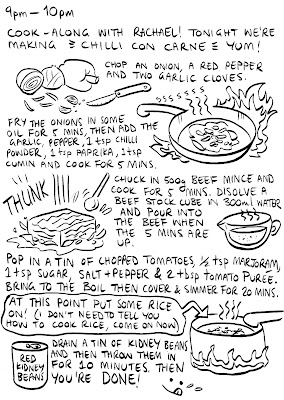 9pm – 10pm
COOK-ALONG WITH RACHAEL! TONIGHT WE'RE
MAKING CHILLI CON CARNE YUM!
CHOP AN ONION, A RED PEPPER
AND TWO GARLIC CLOVES.
FRY THE ONIONS IN SOME
OIL FOR 5 MINS, THEN ADD THE
GARLIC, PEPPER, 1 tsp CHILLI
POWDER, 1 tsp PAPRIKA, 1 tsp
CUMIN AND COOK FOR 5 MINS.
THUNK
CHUCK IN 500g BEEF MINCE AND
COOK FOR 5 MINS. DISOLVE A
BEEF STOCK CUBE IN 300ml WATER
AND POUR INTO
THE BEEF WHEN
THE 5 MINS ARE
UP.
POP IN A TIN OF CHOPPED TOMATOES, ½ tsp MARJORAM,
1 tsp SUGAR, SALT + PEPPER & 2 tbsp TOMATO PUREE.
BRING TO THE BOIL THEN COVER & SIMMER FOR 20 MINS.
AT THIS POINT PUT SOME RICE
ON! (I DON'T NEED TO TELL YOU
HOW TO COOK RICE, COME ON NOW)
RED
KIDNEY
BEANS
DRAIN A TIN OF KIDNEY BEANS
AND THEN THROW THEM IN
FOR 10 MINUTES. THEN
YOU'RE DONE!